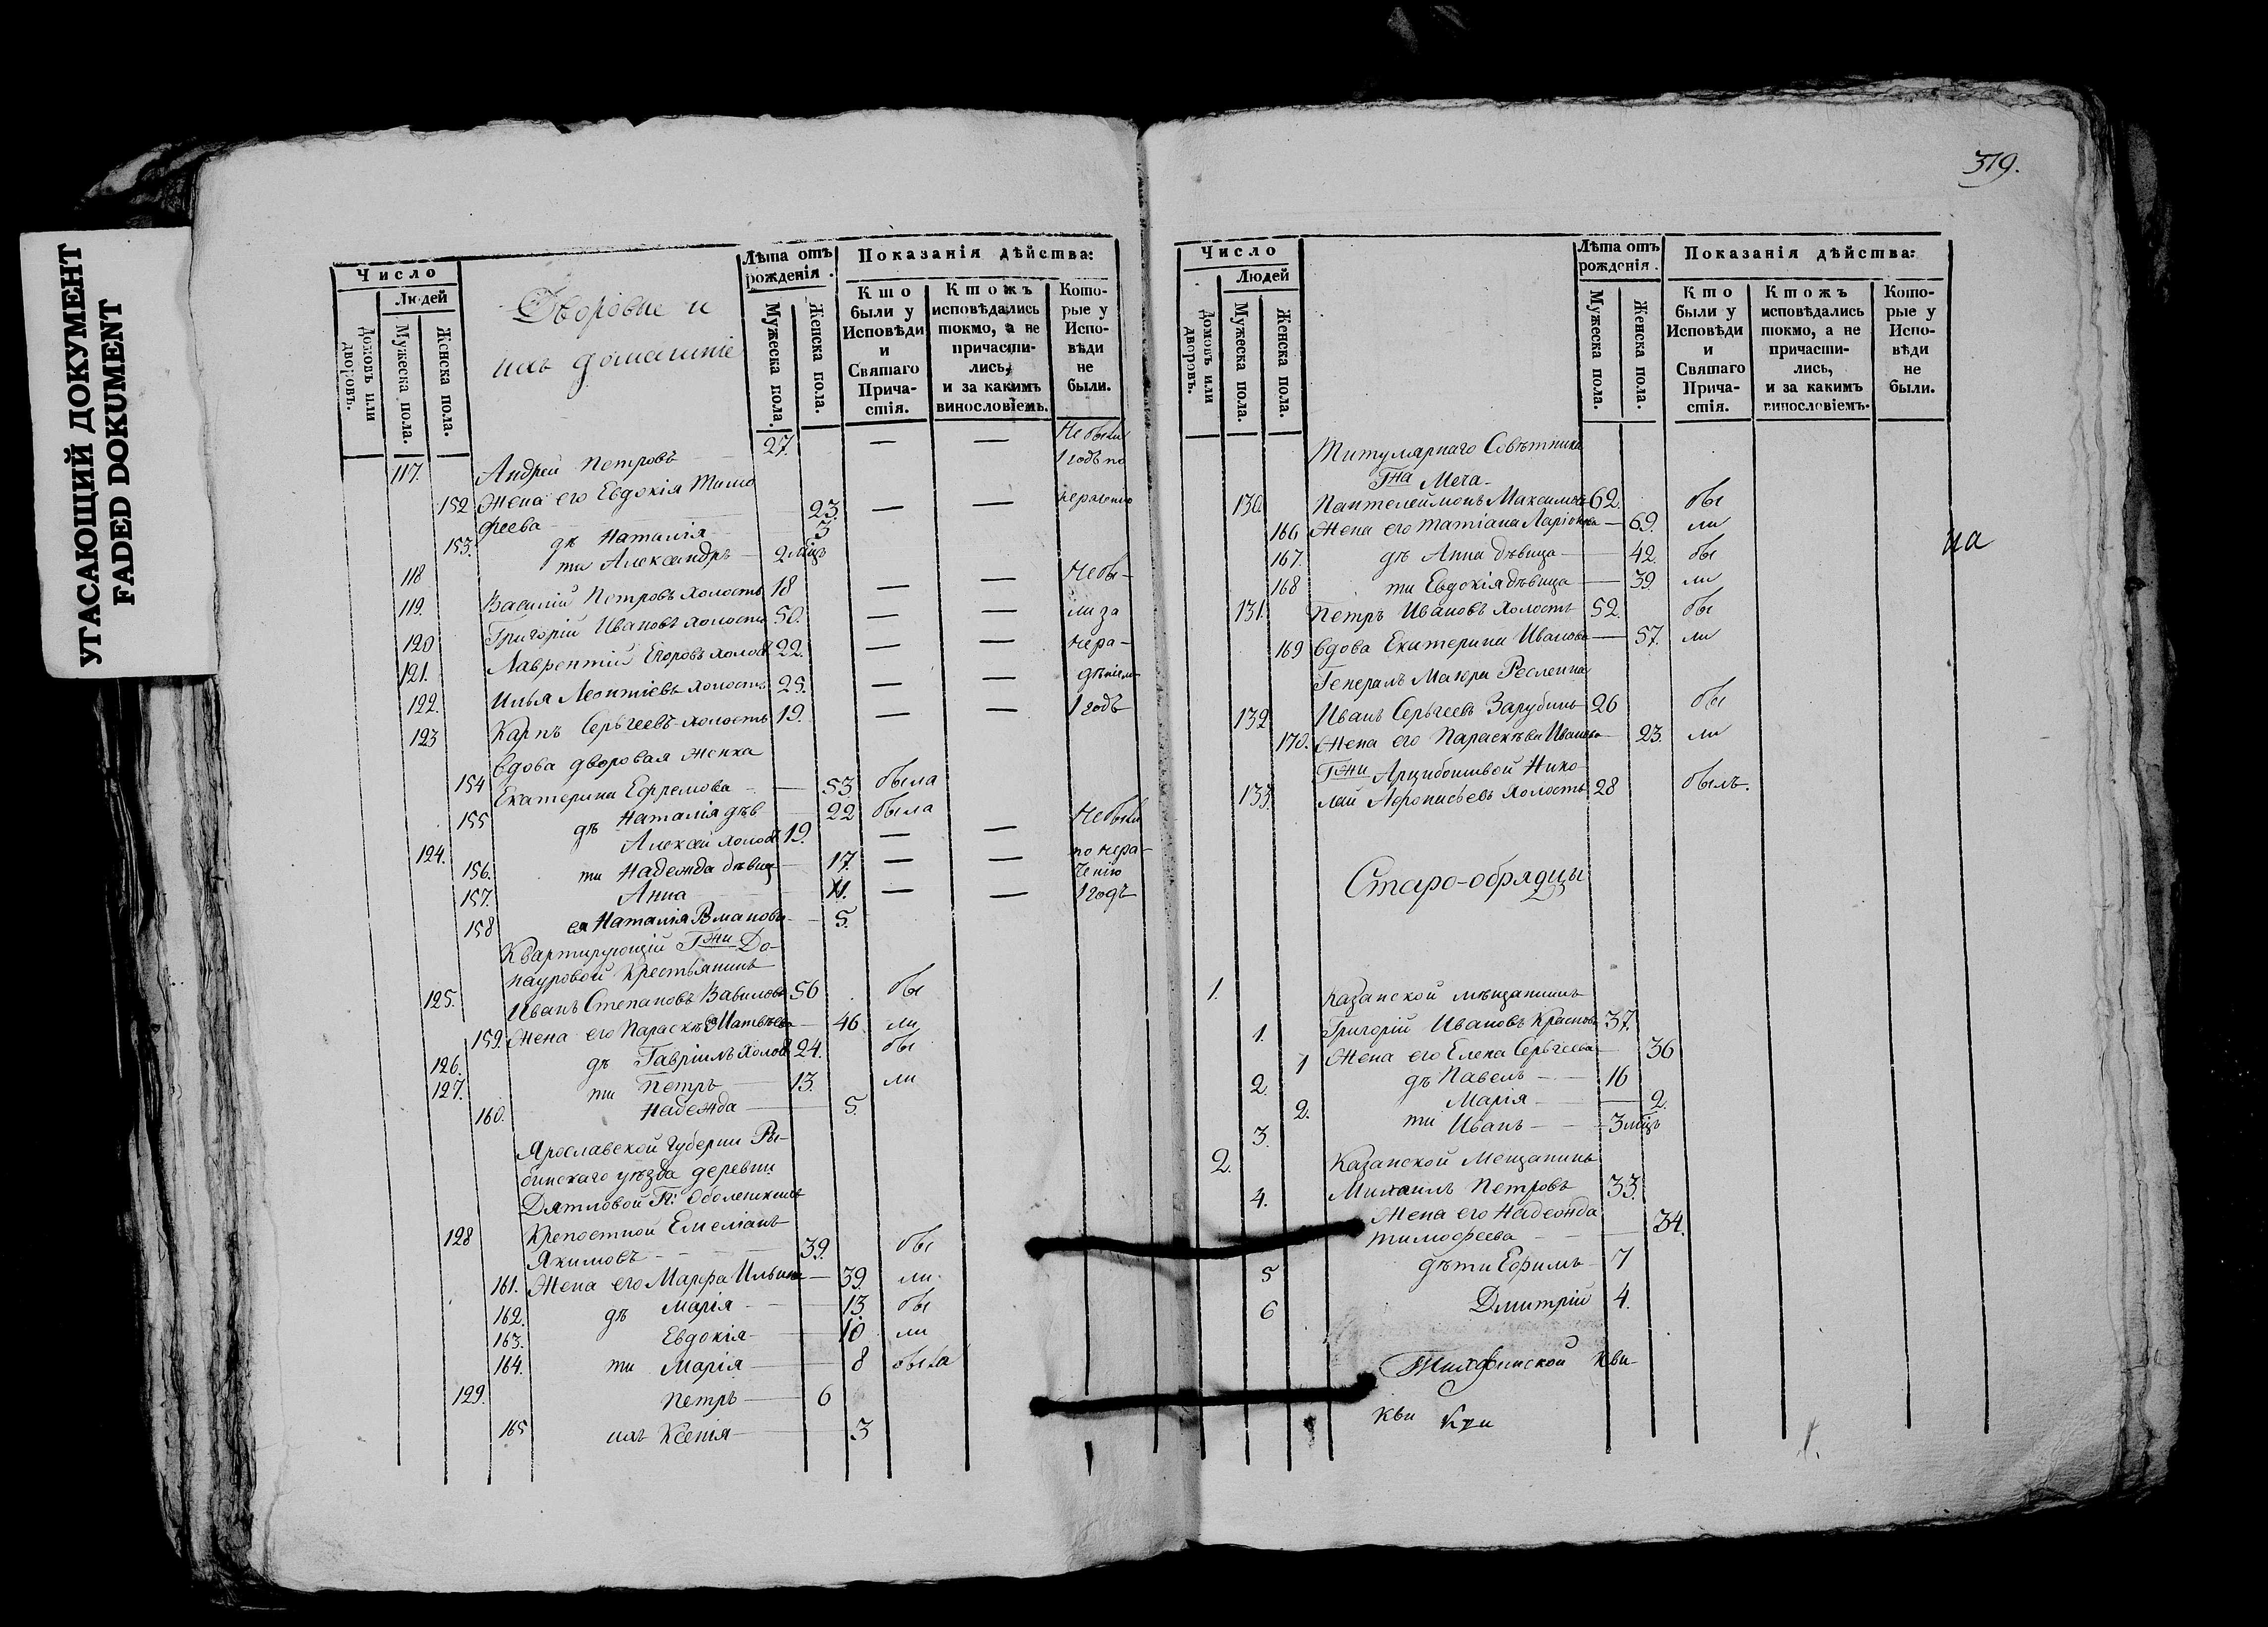 УГАСАЮЩИЙ ДОКУМЕНТ
FADED DOKUMENT
Число
Людей
Домовъ или дворовъ.
Мужеска пола.
Женска пола.
Дворовые и
ихъ домашніе
Лѣта отъ рожденія.
Мужеска пола.
Женска пола.
Показанія дѣйства:
Кто были у Исповѣди и Святаго Причастія.
Ктожъ исповѣдались токмо, а не причастились, и за какимъ винословіемъ.
Которые у Исповѣди не были.
117. Андрей Петровъ 27. — — Не были
1 годъ по
152 Жена его Евдокія Тимо
феева 23. — — нераченію
153. дѣ Наталія 3
118 ти Александръ 2 мѣцъ
119. Василій Петровъ холостъ 18 — — Не бы-
120 Григорій Ивановъ холостъ 50. — — ли за
121. Лаврентій Егоровъ холос 22. — — нера-
122. Илья Леонтіевъ холостъ 25. — — дѣніем
123 Карпъ Сергѣевъ холостъ 19. — — 1 годъ
вдова дворовая женка
154 Екатерина Ефремова — 53 была
155 дѣ Наталія дѣв 22 была
124. Алексѣй холос 19. — — Не были
156. ти Надежда дѣвиц 17. — — по нера-
чению
157. Анна 11. — — 1 годъ
158 ея Наталія 5.
Квартирующій Гжи До-
науровой крестьянинъ
125. Иванъ Степановъ Вавиловъ 56 бы
159. Жена его Параскѣва Матвѣева — 46 ли
126. дѣ Гавріилъ холос 24. бы
127. ти Петръ 13. ли
160. Надежда 5.
Ярославской Губерніи Ры-
бинскаго уѣзда деревни
Дятловой
128 Крепостной Емеліанъ
Якимовъ 39. бы
161. Жена его Марфа Ильина — 39. ли.
162. дѣ Марія 13. бы
163. Евдокія 10 ли
164. ти Марія 8 была
129. Петръ 6
165 ихъ Ксенія 3
319.
Число
Людей
Домовъ или дворовъ.
Мужеска пола.
Женска пола.
Лѣта отъ рожденія.
Мужеска пола.
Женска пола.
Показанія дѣйства:
Кто были у Исповѣди и Святаго Причастія.
Ктожъ исповѣдались токмо, а не причастились, и за какимъ винословіемъ.
Которые у Исповѣди не были.
Титулярнаго Совѣтника
Гна Меча
130. Пантелеймонъ Максимовъ 62. бы
166 Жена его Татіана Ларіонова — 69. ли
167. дѣ Анна дѣвица 42. бы
168 ти Евдокія дѣвица — 39. ли
131. Петръ Ивановъ холостъ 52. бы
169 вдова Екатерина Иванова — 57. ли
Генералъ Маіора
132 Иванъ Сергѣевъ Зарубинъ 26 бы
170. Жена его Параскѣва Иванова — 23. ли
Гжи Арцибошевой Нико-
133. лай холостъ 28 былъ.
на
Старо-обрядцы
1. Казанской мѣщанинъ
1. Григорій Ивановъ Красновъ 37.
1 Жена его Елена Сергѣева 36
2. дѣ Павелъ 16
2. Марія 2.
3. ти Иванъ 3 мѣцъ
2. Казанской Мещанинъ
4. Михаилъ Петровъ 33.
Жена его Надежда
Тимофеева 34.
5 дѣти Ефимъ 7
6 Дмитрій 4.
Тихфинской